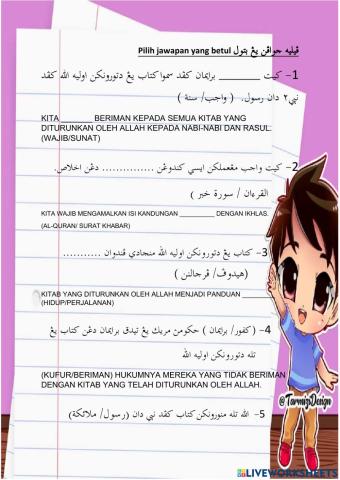 قيليه جواڤن يڠ بتول Pilih jawapan yang betul
1- كيت ________ برايمان كڤد سموا كتاب يڠ دتورونكن اوليه الله كڤد
نبي٢ دان رسول. ( واجب/ سنة )
KITA ______ BERIMAN KEPADA SEMUA KITAB YANG
DITURUNKAN OLEH ALLAH KEPADA NABI-NABI DAN RASUL.
(WAJIB/SUNAT)
2- كيت واجب مڠعملكن ايسي كندوڠن ............... دڠن اخلاص.
القرءان / سورة خبر )
KITA WAJIB MENGAMALKAN ISI KANDUNGAN _________ DENGAN IKHLAS.
(AL-QURAN/ SURAT KHABAR)
3- كتاب يڠ دتورونكن اوليه الله منجادي ڤندوان ...........
(هيدوڤ/ ڤرجالنن )
KITAB YANG DITURUNKAN OLEH ALLAH MENJADI PANDUAN ______
(HIDUP/PERJALANAN)
4- (كفور/ برايمان ) حكومن مريك يڠ تيدق برايمان دڠن كتاب يڠ
تله دتورونكن اوليه الله
(KUFUR/BERIMAN) HUKUMNYA MEREKA YANG TIDAK BERIMAN
DENGAN KITAB YANG TELAH DITURUNKAN OLEH ALLAH.
5- الله تله منورونكن كتاب كڤد نبي دان (رسول/ ملائكة)
@TarmiziDesign
LIVEWORKSHEETS